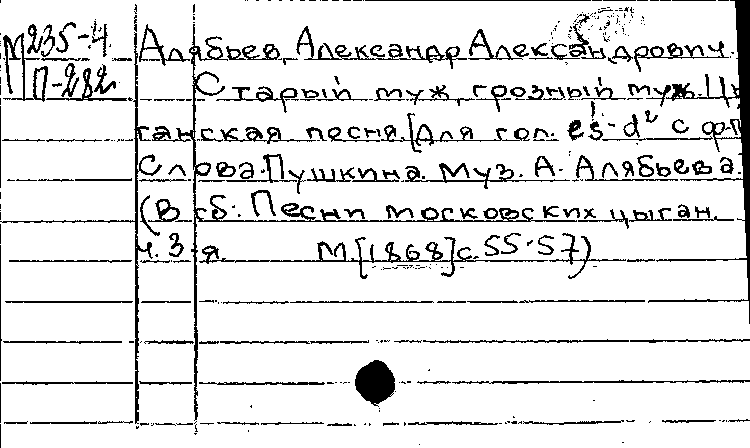 М 235-4
П-282
Алябьев, Александр Александрович.
Старый муж, грозный муж! Цы
ганская песня. [Для гол. es¹-d² с ф-п
Слова Пушкина. Муз. А. Алябьева.
(В сб: Песни московских цыган.
ч. 3-я. М. [1868] с. 55-57)